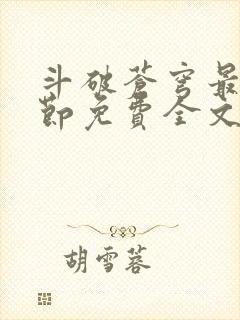 斗破苍穹最
节免费全文
胡雪蓉